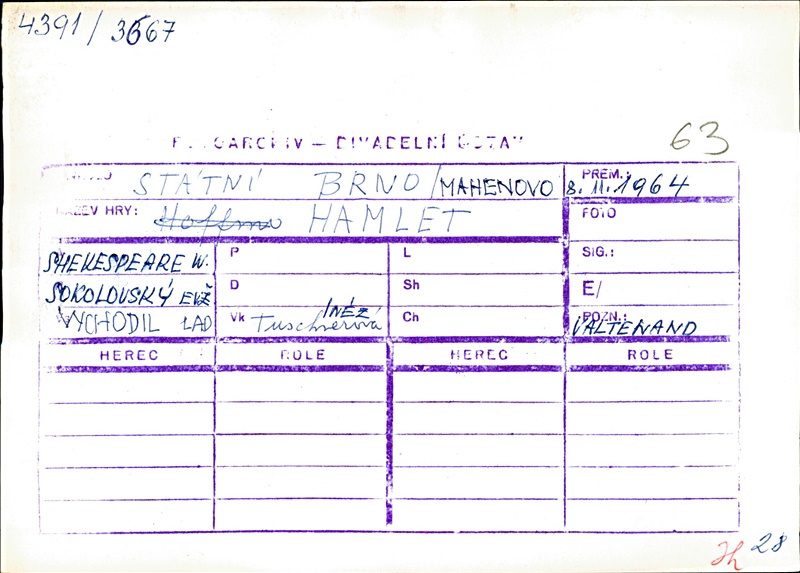 4391/3667
63
FOTOARCHIV – DIVADELNÍ ÚSTAV
STÁTNÍ BRNO/MAHENOVO PREM.: 8.11.1964
NÁZEV HRY: HAMLET FOTO
SHEKESPEARE W. P L SIG.:
SOKOLOVSKÝ EVŽ D Sh E/
VYCHODIL LAD Vk Tuschnerová INÉZ Ch POZN.: VALTENAND
HEREC ROLE HEREC ROLE
28